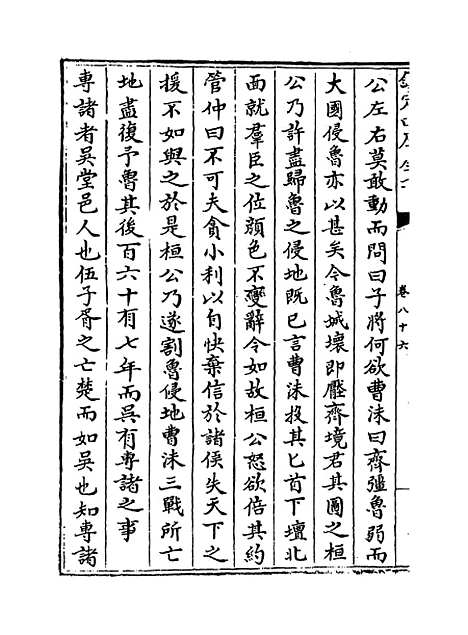 欽定四庫全書
卷八十六
公左右莫敢動而問曰子將何欲曹沬曰齊彊魯弱而
大國侵魯亦以甚矣今魯城壞即壓齊境君其圖之桓
公乃許盡歸魯之侵地既已言曹沬投其匕首下壇北
面就羣臣之位顔色不變辭令如故桓公怒欲倍其約
管仲曰不可夫貪小利以自快棄信於諸侯失天下之
援不如與之於是桓公乃遂割魯侵地曹沬三戰所亡
地盡復予魯其後百六十有七年而吳有専諸之事
専諸者吳堂邑人也伍子胥之亡楚而如吳也知専諸